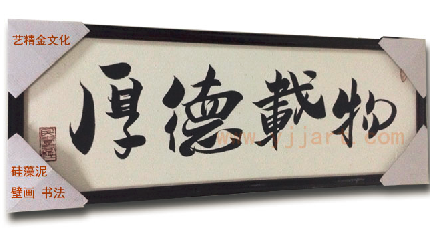 艺精金文化
厚德載物
硅藻泥
壁画 书法